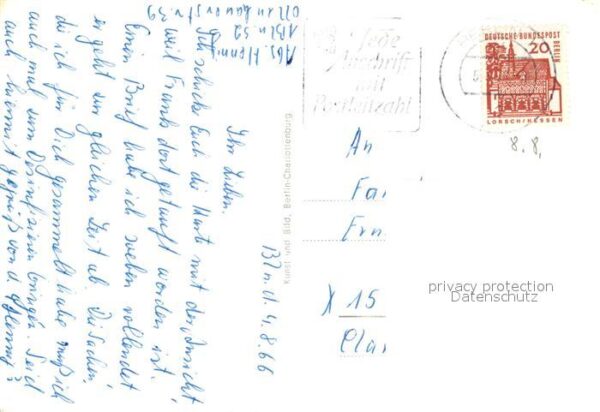 Abs. Henni
1 Bln 52
Bln. d. 4.8.66
Ihr Lieben.
Ich schicke Euch die Karte mit der Ansicht
weil Frank dort getauft worden ist.
Einen Brief habe ich soeben vollendet
er geht zur gleichen Zeit ab. Die Sachen
die ich für Dich gesammelt habe muß ich
auch mal zum Desinfizieren bringen. Seid
auch hiermit gegrüßt von d. Henny
Kunst und Bild, Berlin-Charlottenburg
Jede
Anschrift
mit
Postleitzahl
DEUTSCHE BUNDESPOST
BERLIN
20
LORSCH/HESSEN
8.8.
An
Fa
Ern
X 15
Cla
privacy protection
Datenschutz